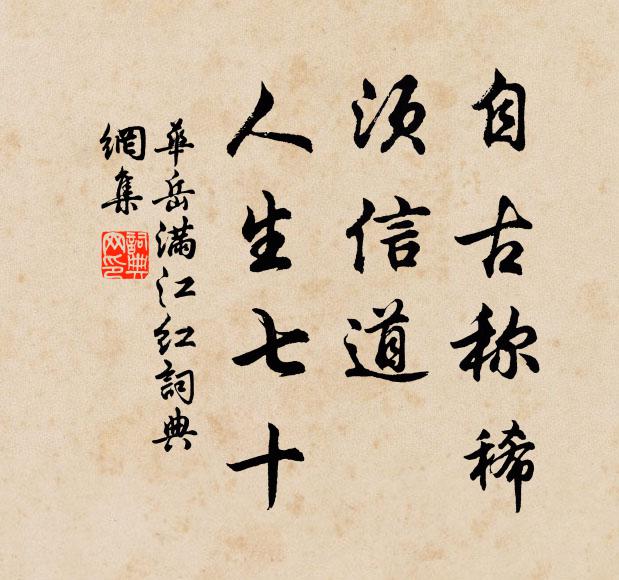 自古称稀
须信道
人生七十
華岳满江红詞典
網集
詞典
网印